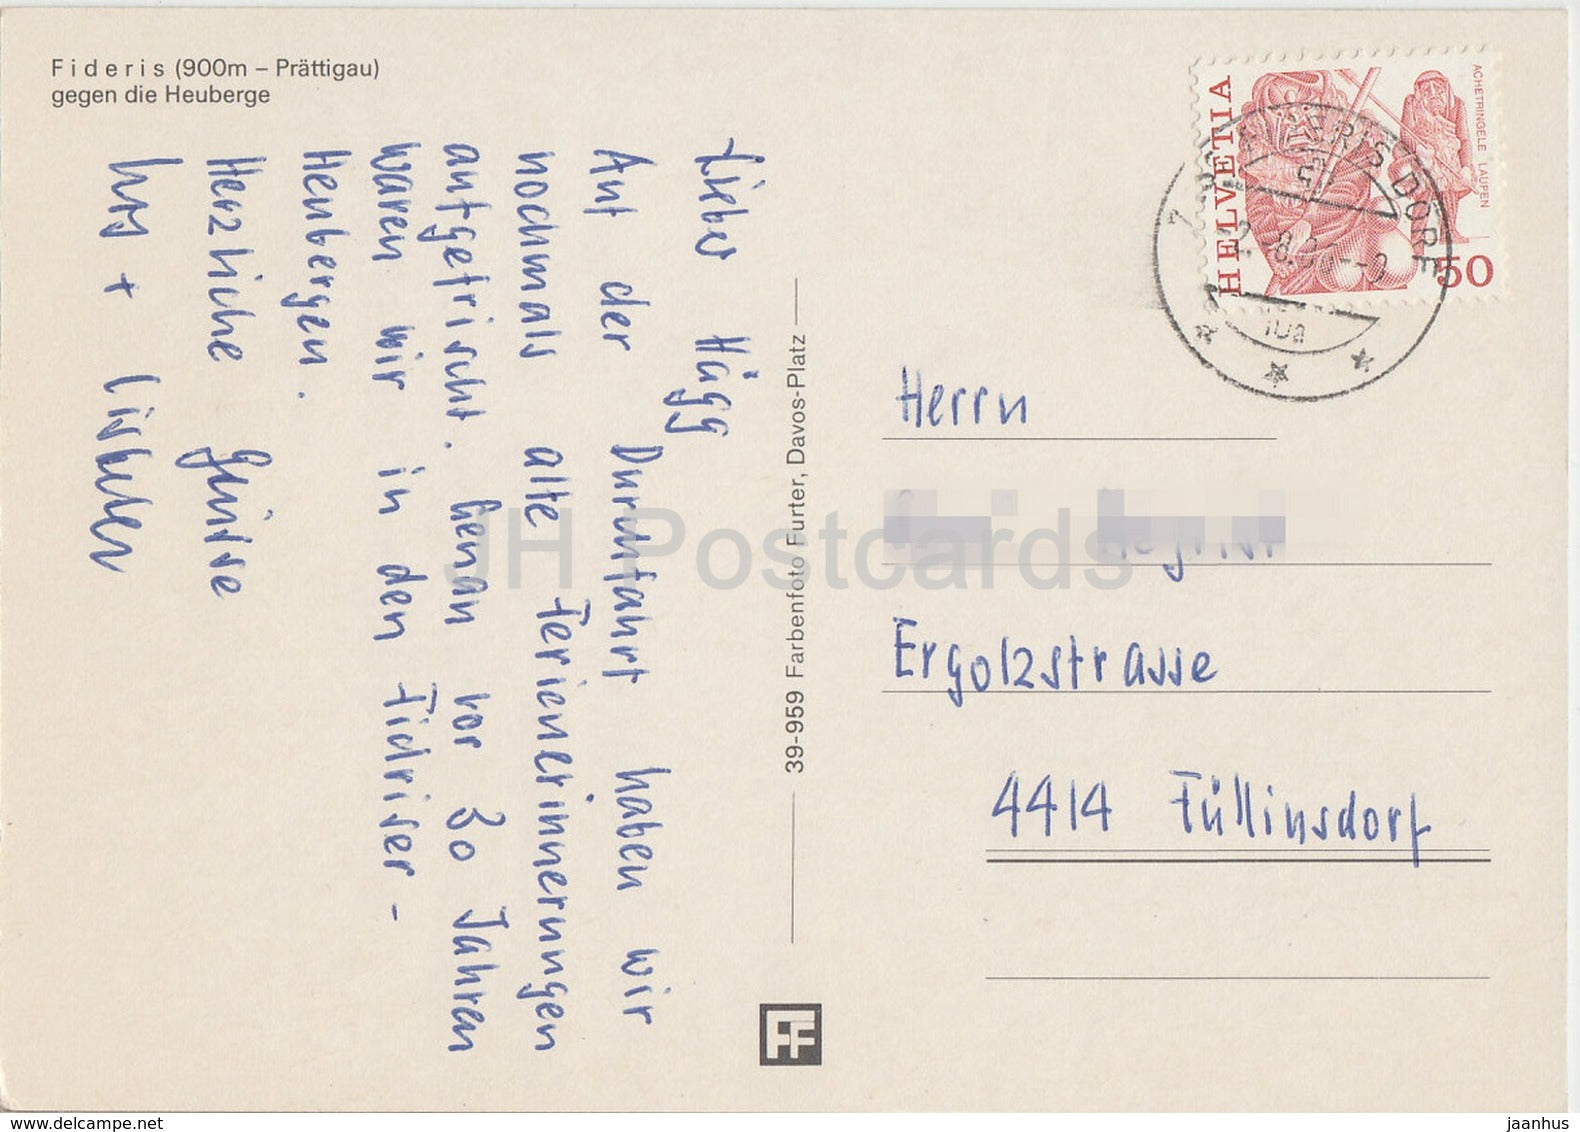 Fideris (900m – Prättigau)
gegen die Heuberge
Lieber Hägg
Auf der Durchfahrt haben wir
nochmals alte Ferienerinnerungen
aufgefrischt. Genau vor 30 Jahren
waren wir in den Fidriser-
Heubergen.
Herzliche Grüsse
39-959 Farbenfoto Furter, Davos-Platz
FF
HELVETIA
ACHETRINGELE LAUPEN
50
Herrn
Ergolzstrasse
4414 Füllinsdorf
JH Postcards
www.delcampe.net
jaanhus